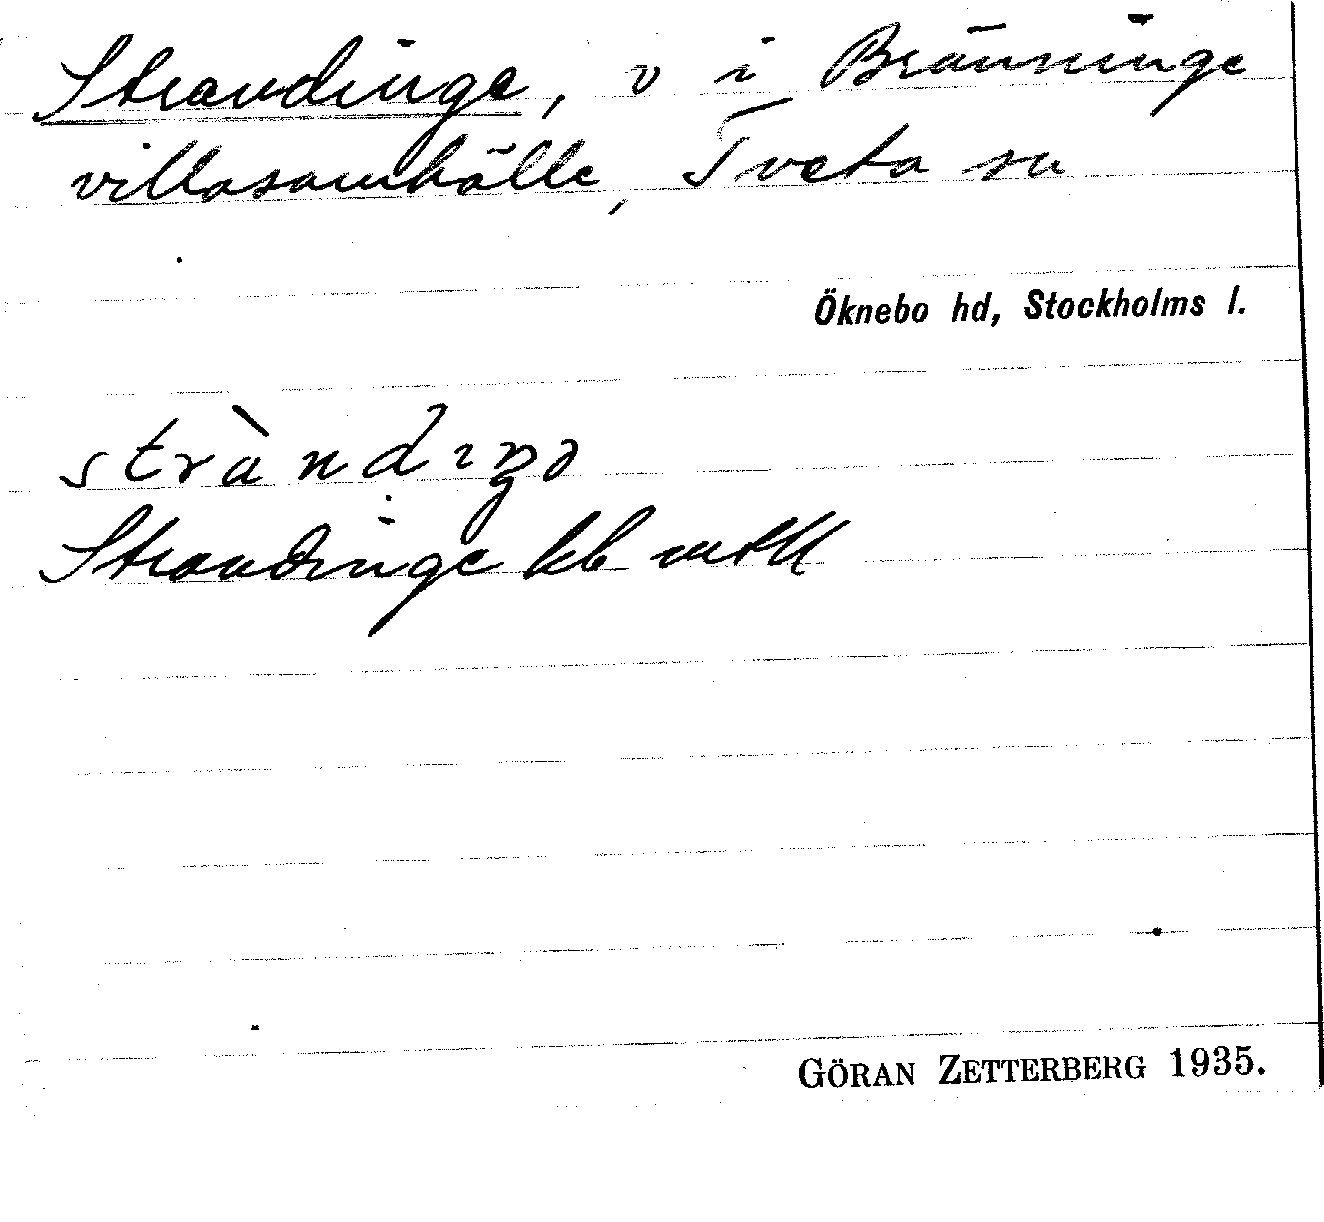 Strandinge, v i Bränninge
villasamhälle, Tveta sn
Öknebo hd, Stockholms l.
stràndıŋə
Strandinge kb mtll
GÖRAN ZETTERBERG 1935.